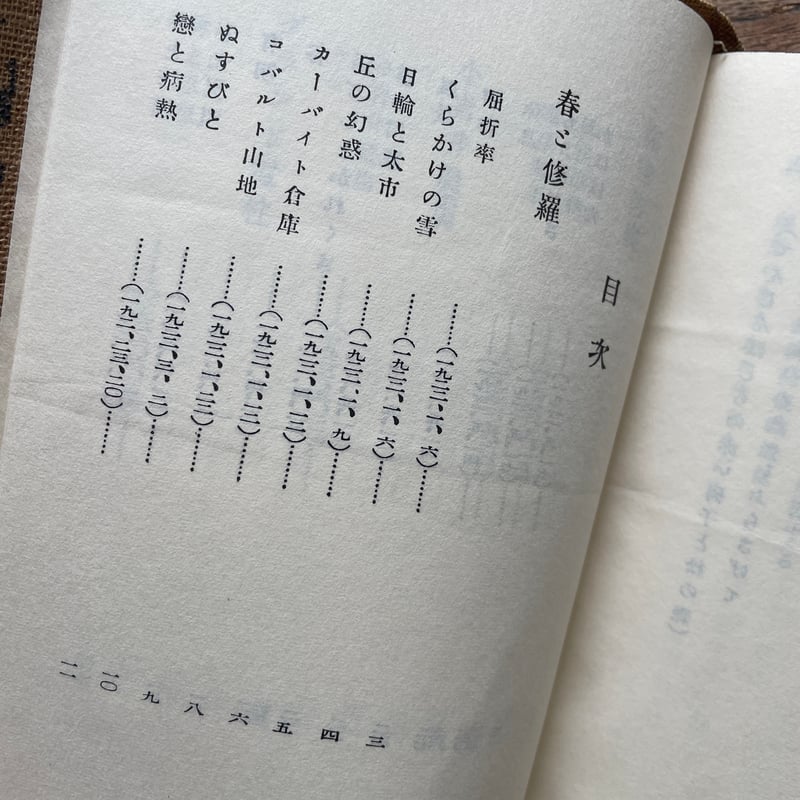 目次
春と修羅
屈折率………(一九二二、一、六)………三
くらかけの雪………(一九二二、一、六)………四
日輪と太市………(一九二二、一、九)………五
丘の幻惑………(一九二二、一、一二)………六
カーバイト倉庫………(一九二二、一、一二)………八
コバルト山地………(一九二二、一、二二)………九
ぬすびと………(一九二二、三、二)………一〇
戀と病熱………(一九二、二三、二〇)………一一